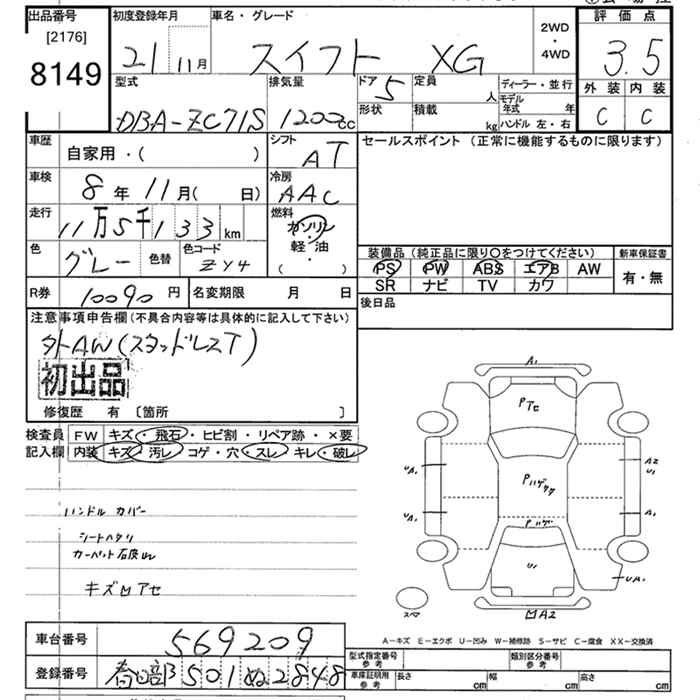 出品番号
[2176]
8149
初度登録年月
21 11月
車名・グレード
スイフト XG
2WD
・
4WD
評価点
3.5
外装 内装
C C
型式
DBA-ZC71S
排気量
1200cc
ドア 5
形状
定員
人
積載
kg
ディーラー・並行
モデル年式 年
ハンドル 左・右
車歴
自家用・( )
シフト
AT
セールスポイント (正常に機能するものに限ります)
車検
8年11月( 日)
冷房
AAC
走行
11万5千133km
燃料
ガソリン
・
軽・油
( )
色
グレー
色替
色コード
ZY4
装備品 (純正品に限り〇をつけてください)
PS PW ABS エアB AW
SR ナビ TV カワ
新車保証書
有・無
R券 10090円
名変期限 月 日
後日品
注意事項申告欄(不具合内容等は具体的に記入して下さい)
外AW(スタッドレスT)
初出品
修復歴 有 〔箇所 〕
検査員
記入欄
FW キズ・飛石・ヒビ割・リペア跡・×要
内装 キズ・汚レ・コゲ・穴・スレ・キレ・破レ
ハンドル カバー
シートヘタリ
キズ凹アセ
A1
Pアセ
UA1
A2
U1
Pハゲタク
UA1
A1
Pハゲ
U1
UA1
スペア
凹A2
A-キズ E-エクボ U-凹み W-補修跡 S-サビ C-腐食 XX-交換済
車台番号
569209
登録番号
春日部 501 ぬ 2848
型式指定番号
参考
類別区分番号
参考
車庫証明用
参考
長さ cm
幅 cm
高さ cm